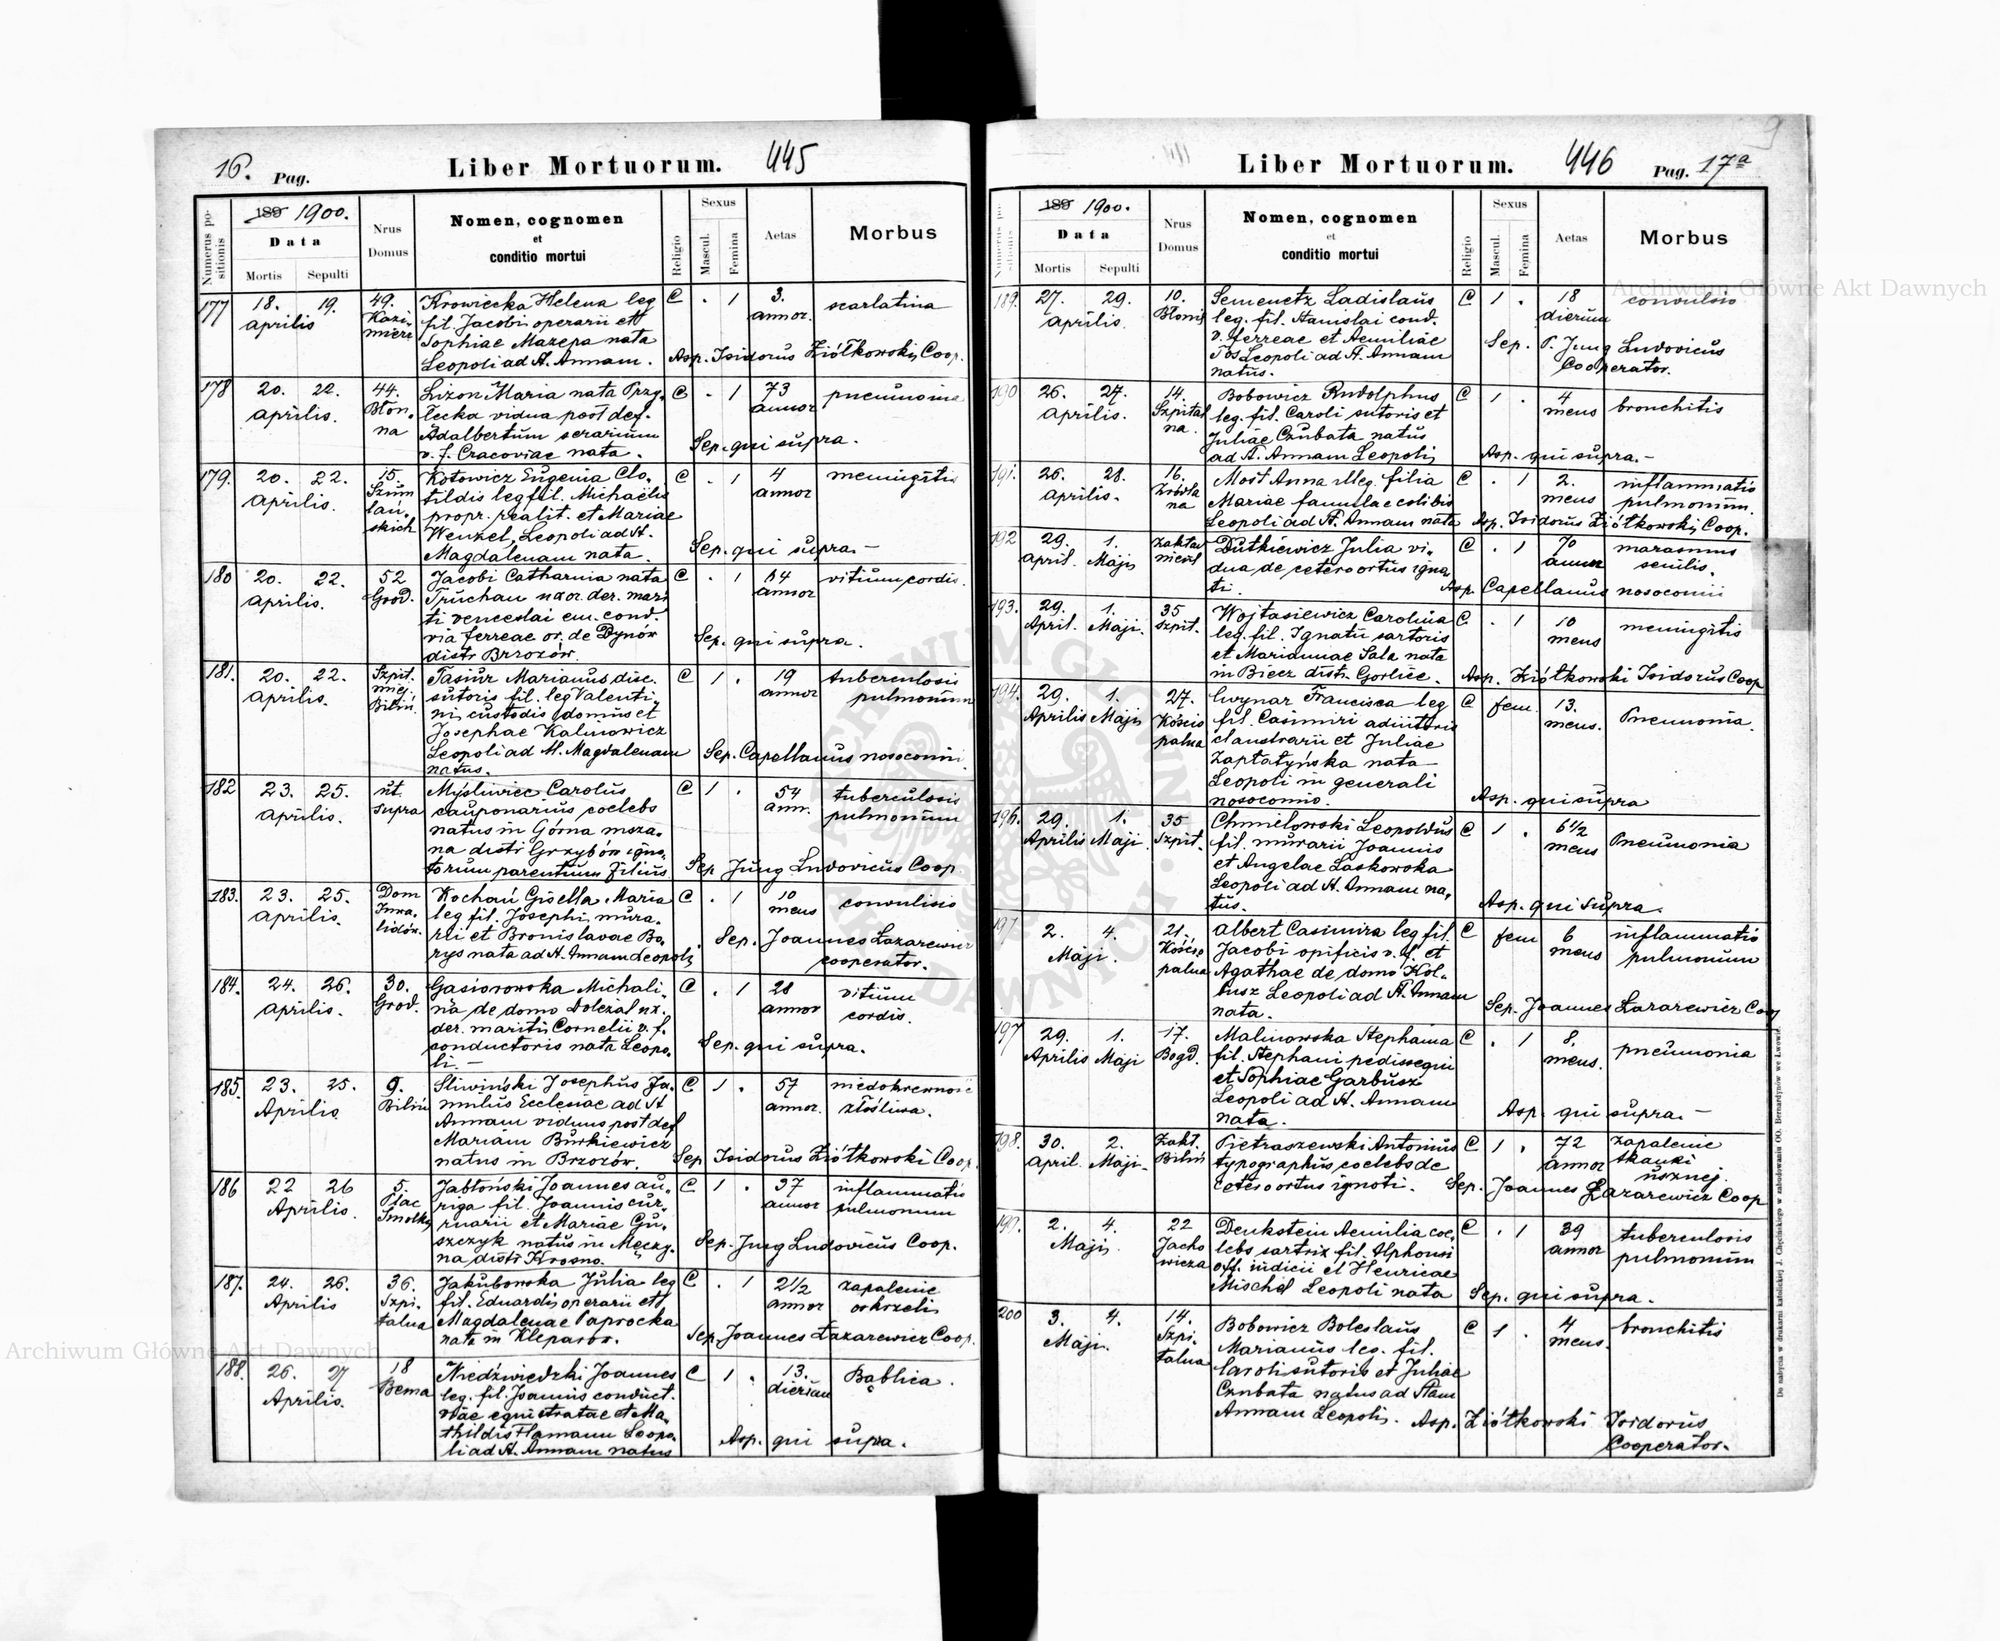 16. Pag.
Liber Mortuorum. 445
Numerus positionis
189 1900.
Data
Mortis Sepulti
Nrus Domus
Nomen, cognomen
et
conditio mortui
Religio
Sexus
Mascul. Femina
Aetas
Morbus
177 18. 19. Aprilis 49. Kazimierz
Krowiecka Helena leg
fil. Jacobi operarii et
Sophiae Mazepa nata
Leopoli ad St. Annam.
C . 1 3. annor. scarlatina
Asp. Isidorus Ziółkowski, Coop.
178 20. 22. Aprilis. 44. Błonna
Lizon Maria nata
vidua post def.
Adalbertum serarium
v. f. Cracoviae nata.
C . 1 73 annor pneumonia
Sep. qui supra.
179. 20. 22. Aprilis. 15. Szumlańskich
Kotowicz Eugenia Clo-
tildis leg fil. Michaelis
propr. realit. et Mariae
Wenzel, Leopoli ad St.
Magdalenam nata.
C . 1 4 annor meningitis
Sep. qui supra. —
180 20. 22. Aprilis. 52 Grod.
Jacobi Catharina nata
Truchan uxor. der. mari
ti venceslai em. cond.
via ferreae or. de Dynów
distr Brzozów.
C . 1 64 annor vitium cordis.
Sep. qui supra.
181. 20. 22. Aprilis. Szpit. miej. Biliń.
Tasiur Marianus disc.
sutoris fil. leg Valenti-
ni, custodis domus et
Josephae Kalinowicz
Leopoli ad M. Magdalenam
natus.
C 1 . 19 annor tuberculosis pulmonum
Sep. Capellanus nosocomii.
182 23. 25. Aprilis. ut supra
Myśliwiec Carolus
cauponarius coelebs
natus in Górna msza-
na distr Grzybów igno-
torum parentum filius
C 1 . 54 ann. tuberculosis pulmonum
Sep Jung Ludovicus Coop
183. 23. 25. Aprilis. Dom Inwalidów.
Kochań Gisella Maria
leg fil. Josephi, mura-
rii et Bronislavae Bo-
rys nata ad St. Annam Leopoli,
C . 1 10 mens convulsio
Sep. Joannes Łazarewicz
cooperator.
184. 24. 26. Aprilis. 30. Grod.
Gasiorowska Michali-
na de domo Doležal ux.
der. mariti Cornelii v. f.
conductoris nata Leopo-
li. —
C . 1 28 annor vitium cordis.
Sep. qui supra.
185. 23. 25. Aprilis 9. Biliń
Sliwiński Josephus Fa-
mulus Ecclesiae ad St
Annam viduus post def
Mariam Burkiewicz
natus in Brzozów.
C 1 . 57 annor. niedokrewność złośliwa.
Sep Isidorus Ziółkowski Coop.
186 22 26 Aprilis. 5. Plac Smolki,
Jabłoński Joannes au-
riga fil. Joannis cur-
ruarii et Mariae Gu-
szczyk natus in
na distr Krosno.
C 1 . 37 annor inflammatio pulmonum
Sep. Jung Ludovicus Coop.
187. 24. 26. Aprilis 36. Szpitalna
Jakubowska Julia leg
fil. Eduardi, operarii et
Magdalenae Paprocka
nata in Kleparów.
C . 1 2 1/2 annor zapalenie oskrzeli,
Sep. Joannes Łazarewicz Coop.
188. 26. 27 Aprilis. 18 Bema
Niedźwiedzki Joannes
leg. fil. Joannis conduct.
viae equistratae et Ma-
thildis Hamann Leopo-
li ad St. Annam natus
C 1 . 13. dierum Bąblica.
Asp. qui supra.
Liber Mortuorum. 446
Pag. 17a
Numerus positionis
189 1900.
Data
Mortis Sepulti
Nrus Domus
Nomen, cognomen
et
conditio mortui
Religio
Sexus
Mascul. Femina
Aetas
Morbus
189. 27. 29. Aprilis. 10. Błonia
Semenetz Ladislaus
leg. fil. Stanislai cond.
v. ferreae et Aemiliae
Leopoli ad St. Annam
natus.
C 1 . 18 dierum convulsio
Sep. P. Jung Ludovicus
Cooperator.
190 26. 27. Aprilis. 14. Szpitalna.
Bobowicz Rudolphus
leg. fil. Caroli sutoris et
Juliae Czubata natus
ad St. Annam Leopoli,
C 1 . 4 mens bronchitis
Asp. qui supra. —
191. 26. 28. Aprilis. 16. Źródlana
Most Anna illeg. filia
Mariae famulae colibis
Leopoli ad St. Annam nata
C . 1 2. mens inflammatio pulmonum.
Asp. Isidorus Ziółkowski, Coop.
192 29. April. 1. Maji, zakład nieul
Dutkiewicz Julia vi-
dua de cetero ortus igno
ti.
C . 1 70 annor marasmus senilis.
Asp. Capellanus nosocomii
193. 29. April. 1. Maji. 35 Szpit.
Wojtasiewicz Carolina
leg. fil. Ignatii sartoris
et Mariannae Sala nata
in Biecz distr. Gorlice.
C . 1 10 mens meningitis
Asp. Ziółkowski Isidorus Coop
194. 29. Aprilis 1. Maji, 27 Kościo palna
Cwynar Francisca leg
fil. Casimiri adiutoris
claustrarii et Juliae
Zaptatyńska nata
Leopoli in generali
nosocomio.
C fem. 13. mens. Pneumonia.
Asp. qui supra
196. 29. Aprilis 1. Maji 35 Szpit.
Chmielowski Leopoldus
fil. murarii Joannis
et Angelae Laskowska
Leopoli ad St. Annam na-
tus.
C 1 . 6 1/2 mens Pneumonia
Asp. qui supra.
197 2. 4. Maji. 21. Kościopalna
Albert Casimira leg fil.
Jacobi opificis v. f. et
Agathae de domo Kol-
busz Leopoli ad St. Annam
nata.
C fem 6 mens inflammatio pulmonum
Sep. Joannes Łazarewicz Coop
197 29. Aprilis 1. Maji 17. Bogd.
Malinowska Stephania
fil. Stephani pedissequi
et Sophiae Garbusz
Leopoli ad St. Annam
nata.
C . 1 8. mens. pneumonia
Asp. qui supra. —
198. 30. April. 2. Maji. Zakł. Biliń
Pietraszewski Antonius
typographus coelebs de
cetero ortus ignoti.
C 1 . 72 annor zapalenie tkanki usznej.
Sep. Joannes Łazarewicz Coop
199. 2. 4. Maji. 22 Jachowicza
Denkstein Aemilia coe-
lebs sartrix fil. Alphonsi
off. iudicii et Henricae
Mischel Leopoli nata
C . 1 39 annor tuberculosis pulmonum
Sep. qui supra.
200 3. 4. Maji. 14. Szpitalna
Bobowicz Boleslaus
Marianus leg. fil.
Caroli sutoris et Juliae
Czubata natus ad Stam
Annam Leopoli.
C 1 . 4 mens. bronchitis
Asp. Ziółkowski Isidorus
Cooperator.
Do nabycia w drukarni katolickiej J. Chęcińskiego w zabudowaniu OO. Bernardynów we Lwowie.
Archiwum Główne Akt Dawnych
Archiwum Główne Akt Dawnych
ARCHIWUM GŁÓWNE AKT DAWNYCH